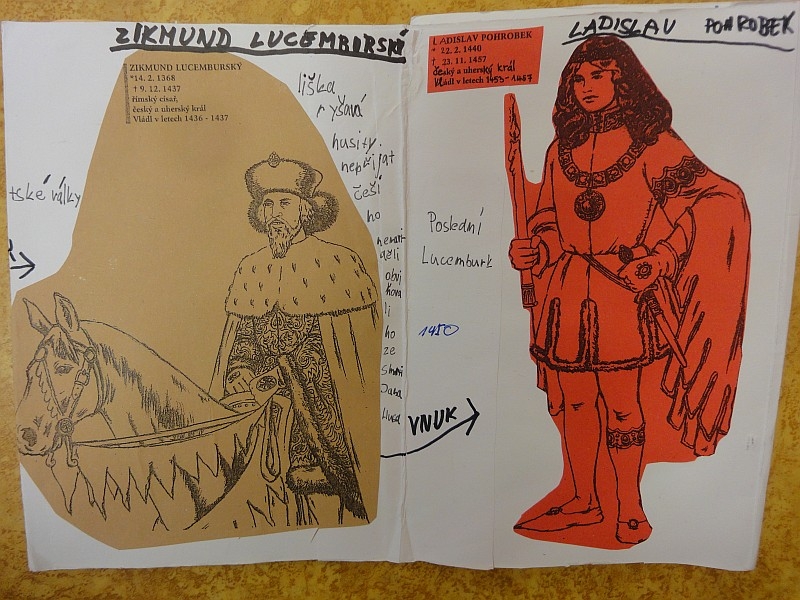 ZIKMUND LUCEMBURSKÝ
ZIKMUND LUCEMBURSKÝ
*14. 2. 1368
† 9. 12. 1437
římský císař,
český a uherský král
Vládl v letech 1436 - 1437
liška
ryšavá
husity.
nepřijat
češi
ho
obvi
ňova
li
ho
ze
smrti
Jana
Husa
tské války
VNUK
LADISLAV POHROBEK
LADISLAV POHROBEK
* 22. 2. 1440
† 23. 11. 1457
český a uherský král
Vládl v letech 1453 - 1457
Poslední
Lucemburk
1450